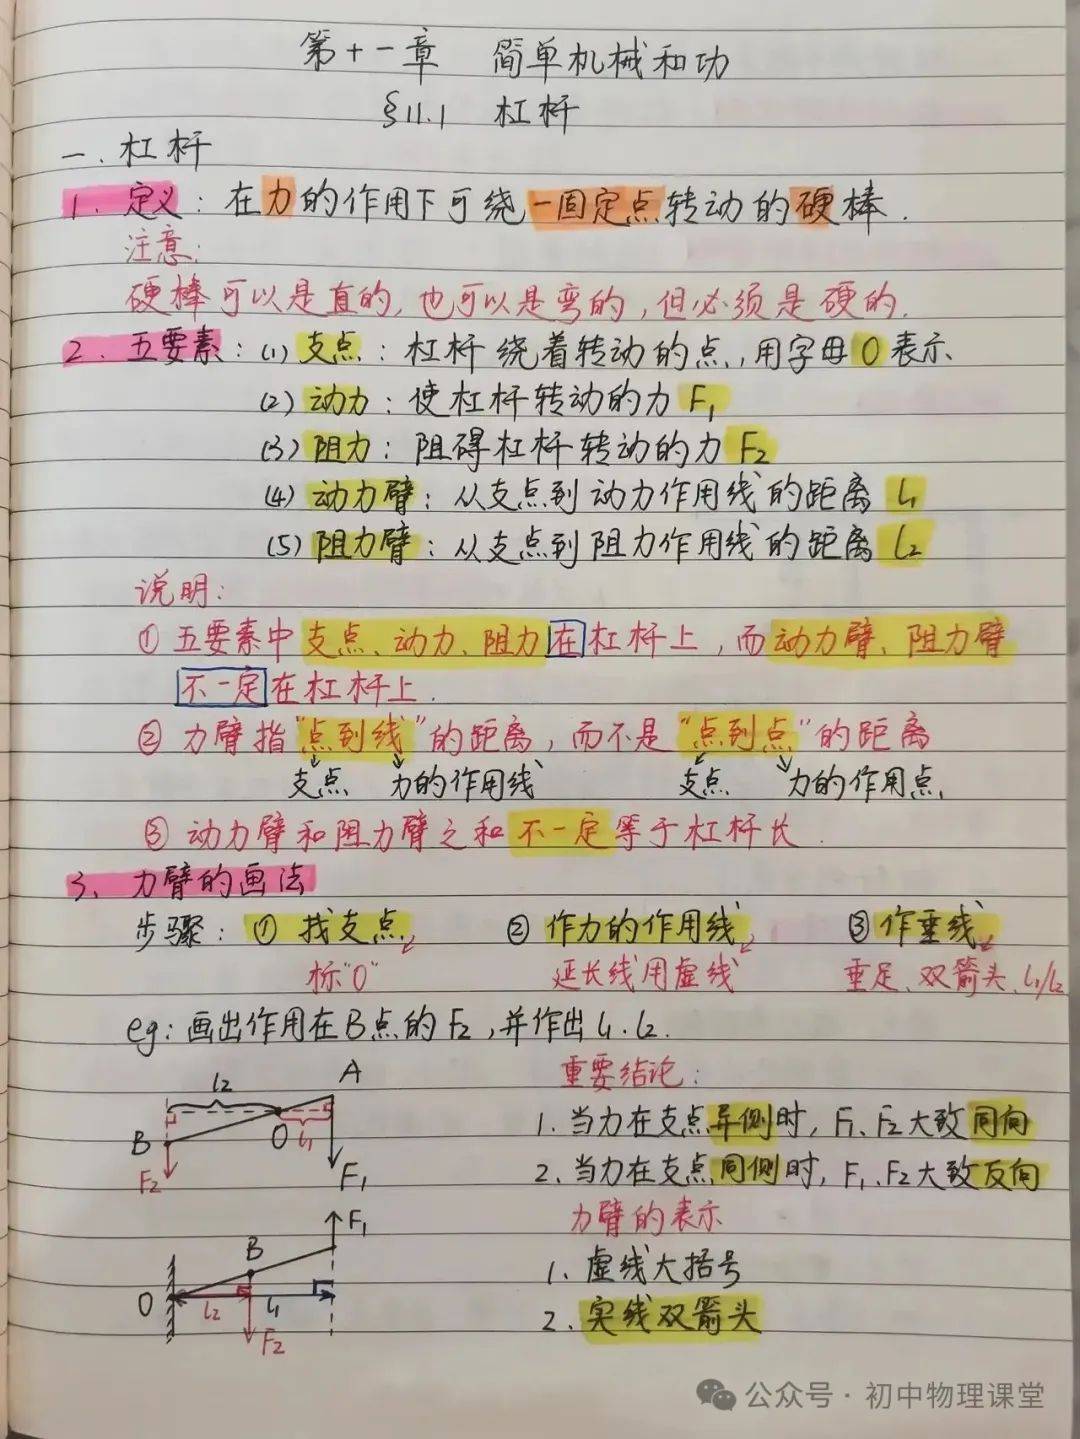 第十一章 简单机械和功
§11.1 杠杆
一.杠杆
1.定义:在力的作用下可绕一固定点转动的硬棒.
注意:
硬棒可以是直的,也可以是弯的,但必须是硬的.
2.五要素:(1)支点:杠杆绕着转动的点,用字母O表示
(2)动力:使杠杆转动的力F₁
(3)阻力:阻碍杠杆转动的力F₂
(4)动力臂:从支点到动力作用线的距离l₁
(5)阻力臂:从支点到阻力作用线的距离l₂
说明:
①五要素中支点、动力、阻力在杠杆上,而动力臂、阻力臂
不一定在杠杆上.
②力臂指"点到线"的距离,而不是"点到点"的距离
支点 力的作用线 支点 力的作用点
③动力臂和阻力臂之和不一定等于杠杆长.
3、力臂的画法
步骤:①找支点 ②作力的作用线 ③作垂线
标"O" 延长线用虚线 垂足、双箭头、l₁/l₂
eg:画出作用在B点的F₂,并作出l₁.l₂.
l₂ A
B O l₁
F₂ F₁
重要结论:
1.当力在支点异侧时,F₁、F₂大致同向
2.当力在支点同侧时,F₁、F₂大致反向
力臂的表示
1.虚线大括号
2.实线双箭头
F₁
B
O l₂ l₁
F₂
公众号·初中物理课堂